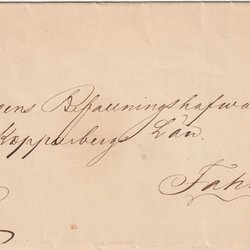 gens Befallningshafva
Kopparbergs Län.
Fah